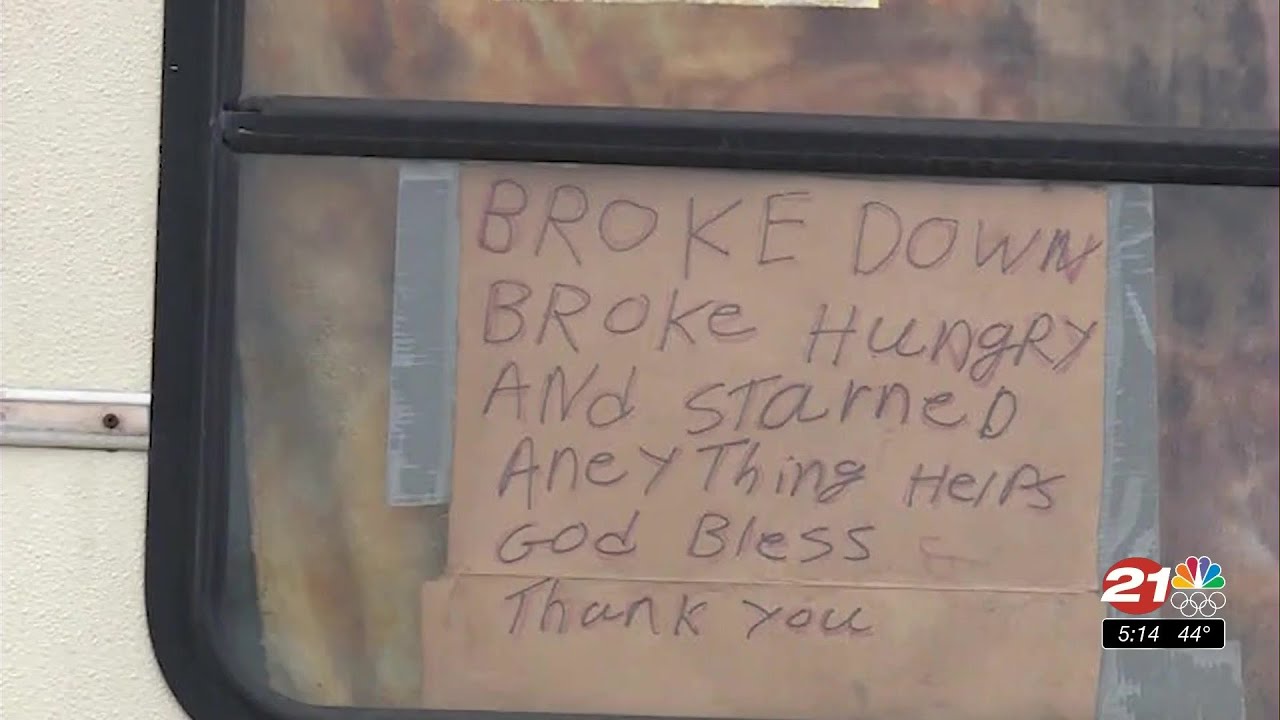 BROKE DOWN
BROKe HungRy
ANd STarneD
AneyThing HelPs
God Bless
Thank you
21
5:14 44°